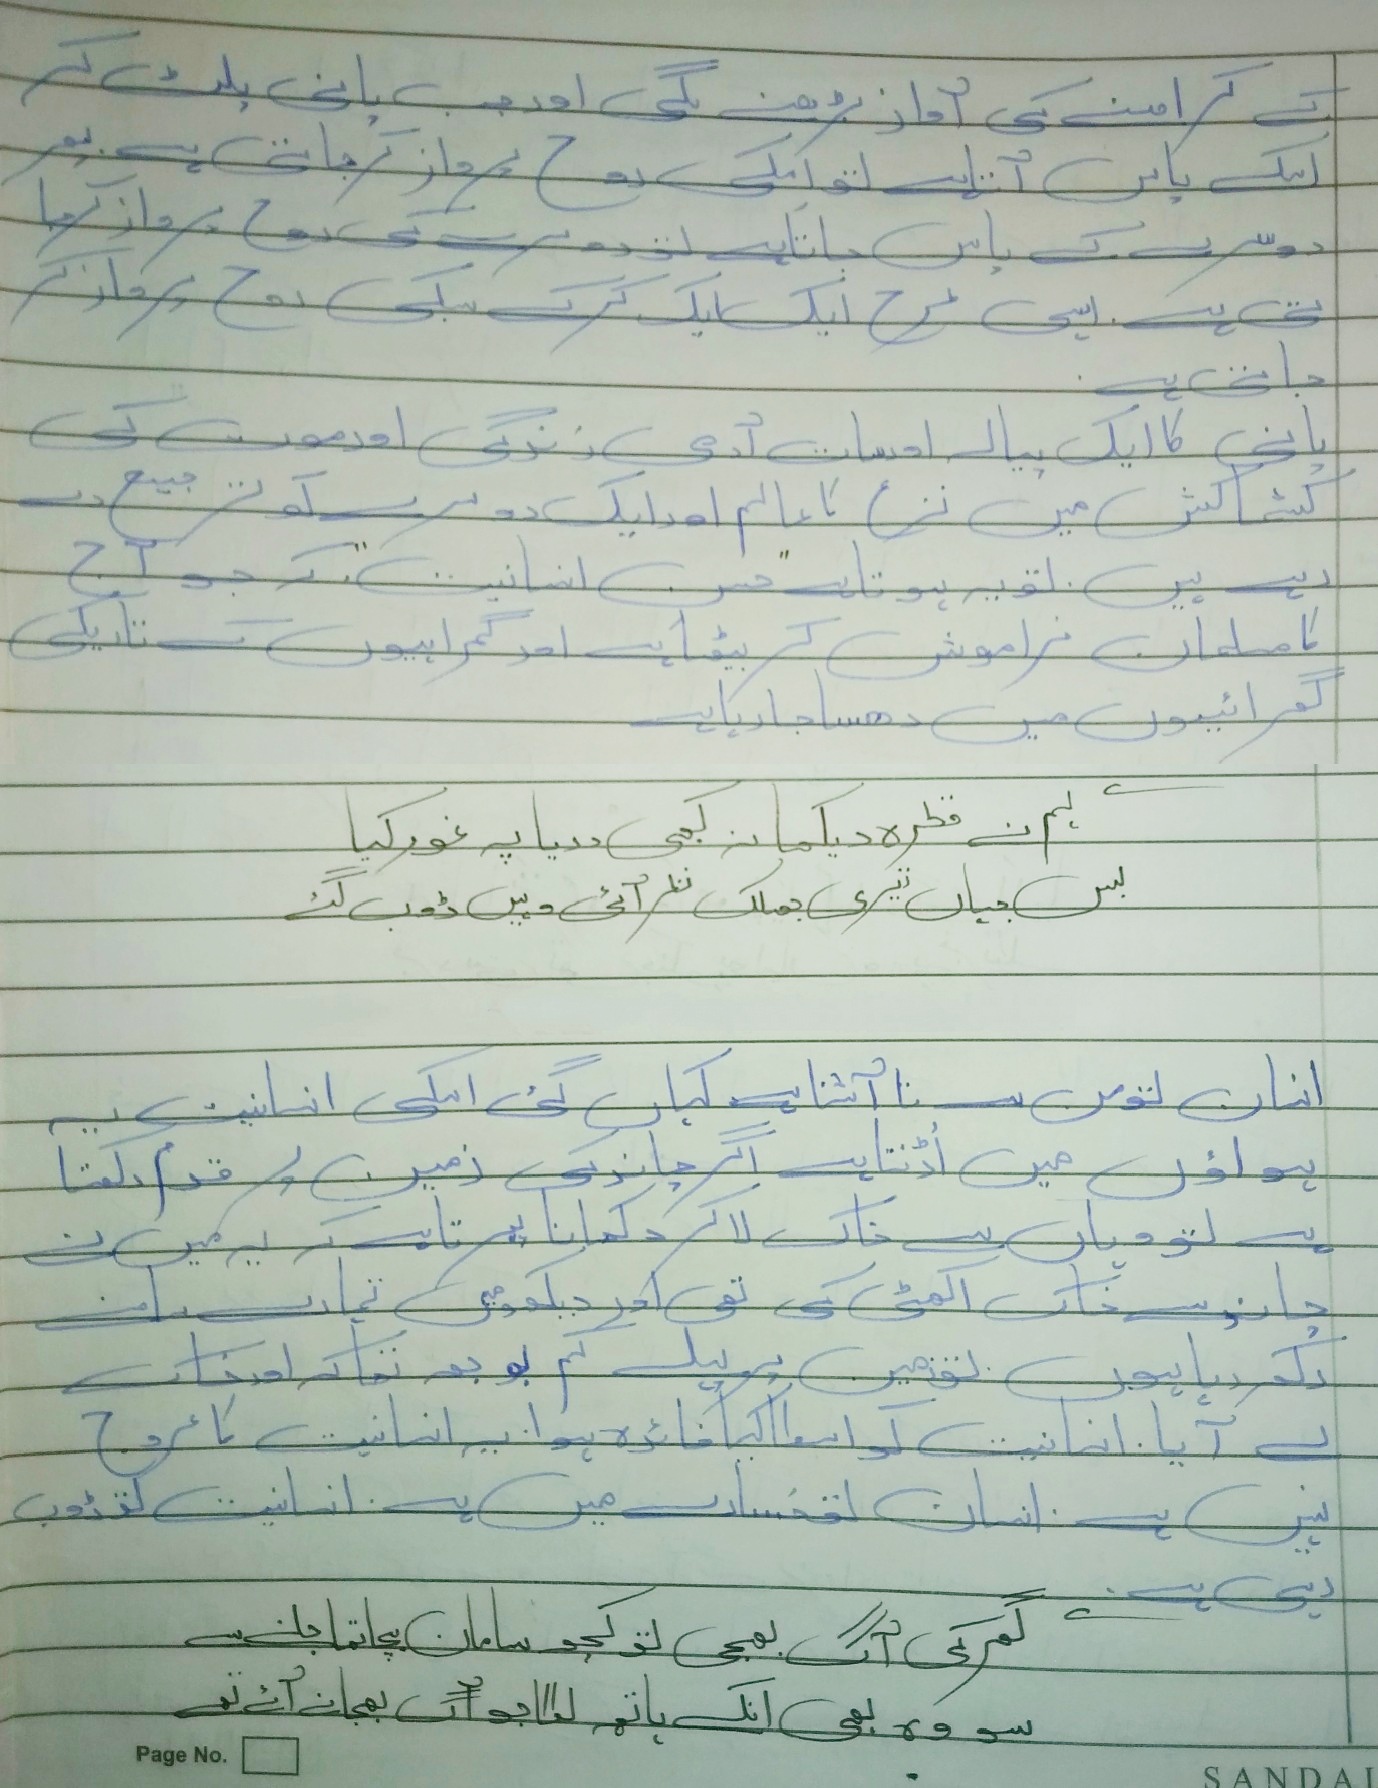 کے کراہنے کی آواز بڑھنے لگی اور جب پانی پلٹ کر
اسکے پاس آتا ہے تو اسکی روح پرواز کر جاتی ہے پھر
دوسرے کے پاس جاتا ہے تو دوسرے کی روح پرواز کر جا
تی ہے. اسی طرح ایک ایک کر کے سبکی روح پرواز کر
جاتی ہے.
پانی کا ایک پیالہ اور سات آدمی زندگی اور موت کی
کشماکش میں نزع کا عالم اور ایک دوسرے کو ترجیع دے
رہے ہیں. تو یہ ہوتا ہے "حسن انسانیت" کہ جو آج
کا مسلمان فراموش کر بیٹھا ہے اور گمراہیوں کے تاریکی
گہرائیوں میں دھسا جا رہا ہے
ہم نے قطرہ دیکھا نہ کبھی دریا پہ غور کیا
بس جہاں تیری جھلک نظر آئی وہیں ڈوب گئے
انسان تو اس سے نا آشنا ہے کہاں گئی اسکی انسانیت یہ
ہواؤں میں اُڑنتا ہے اگر چاند کی زمین پر قدم رکھتا
ہے تو وہاں سے خاک لا کر دکھاتا پھرتا ہے کہ یہ میں نے
چاند سے خاک اکھٹی کی تھی اور دیکھو میں تمہارے سامنے
رکھ رہا ہوں. تو زمین پر پہلے کم بوجھ تھا کہ اور خاک
لے آیا. انسانیت کو اسکا کیا فائدہ ہوا. یہ انسانیت کا عروج
نہیں ہے. انسان تو خسارے میں ہے. انسانیت تو ڈوب
رہی ہے.
گھر کی آگ بجھی تو کچھ سامان بچا تھا جلنے سے
سو وہ بھی انکے ہاتھ لگا جو آگ بجھانے آئے تھے
Page No.
SANDAL